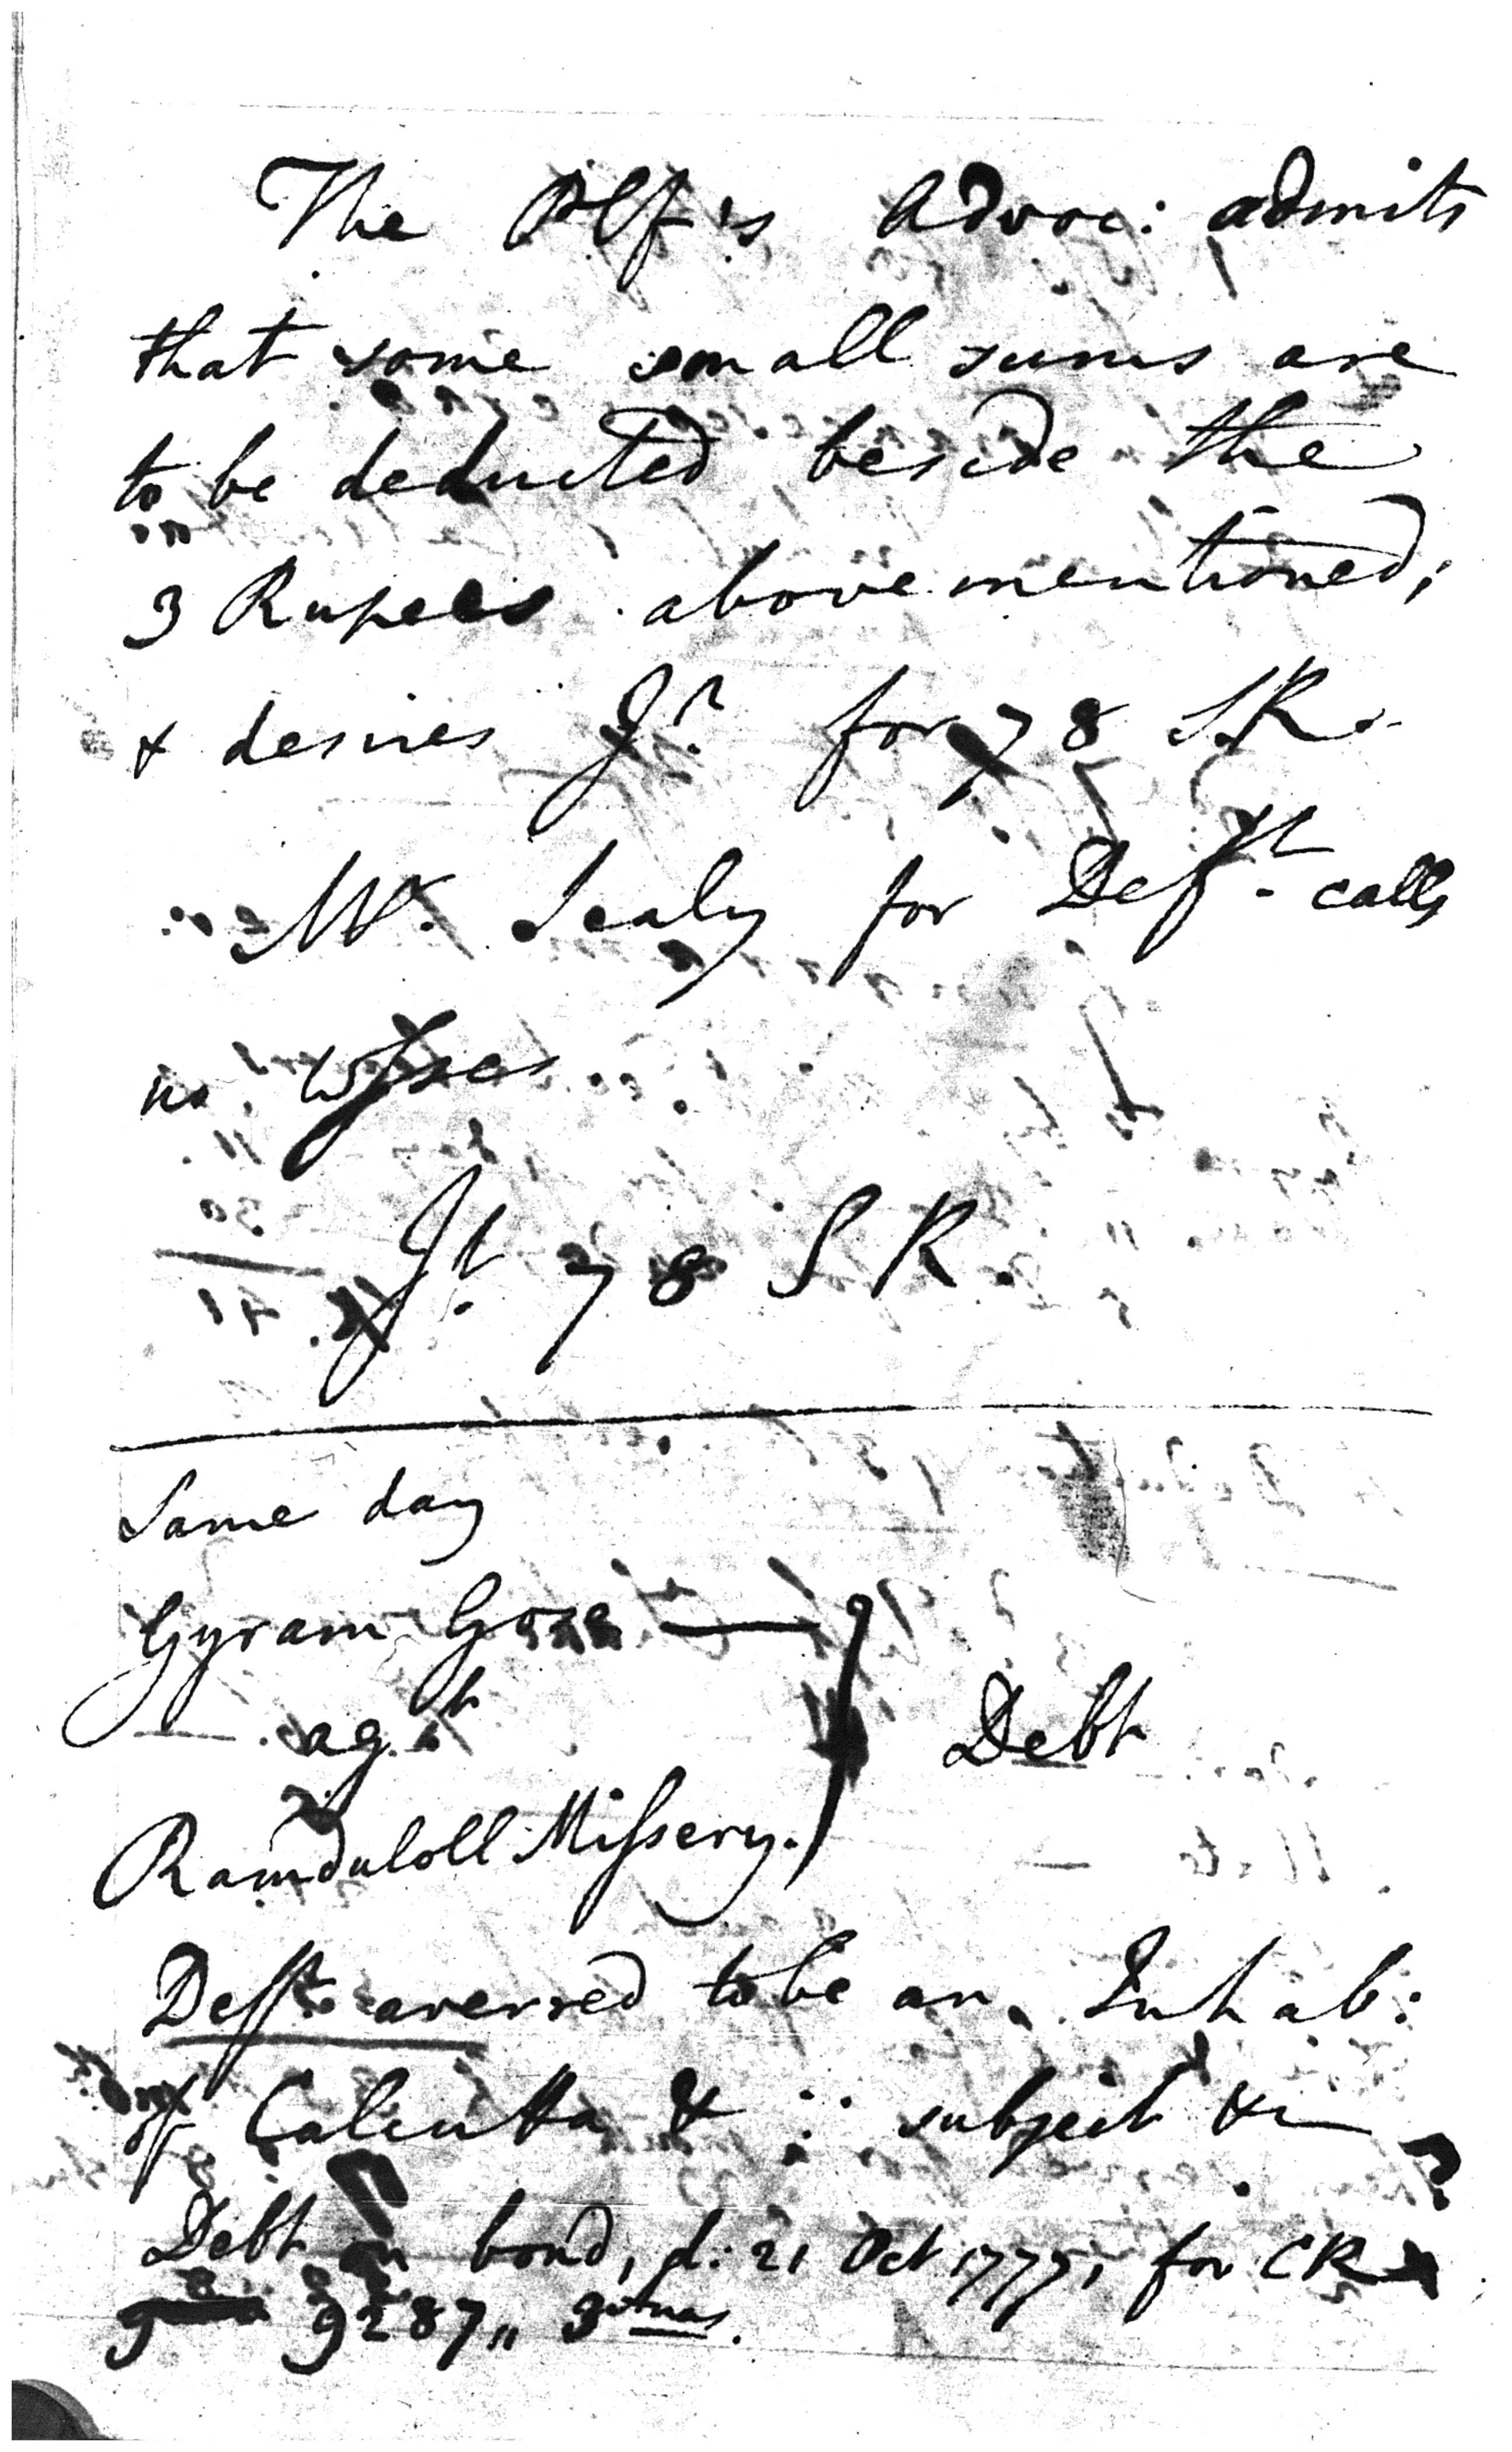 The Plf's Advoc: admits
that some small sums are
to be deducted beside the
3 Rupees abovementioned,
& desires Jt. for 78 S.R.
Mr. Sealy for Deft. calls
no Wsses
Jt. 78 S R.
Same day
Gyram Gose —
agt
Ramduloll Missery.
Debt
Defft. averred to be an Inhab:
of Calcutta & ∴ subject &c
Debt on bond, d: 21 Oct 1777, for CR
9287,, 3 anas.